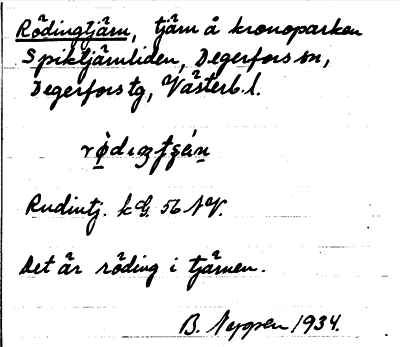 Rödingtjärn, tjärn å kronoparken
Spiktjärnliden, Degerfors sn,
Degerfors tg, Västerb. l.
Rudintj. kbl. 56 NV.
Det är röding i tjärnen.
B. Neppen 1934.